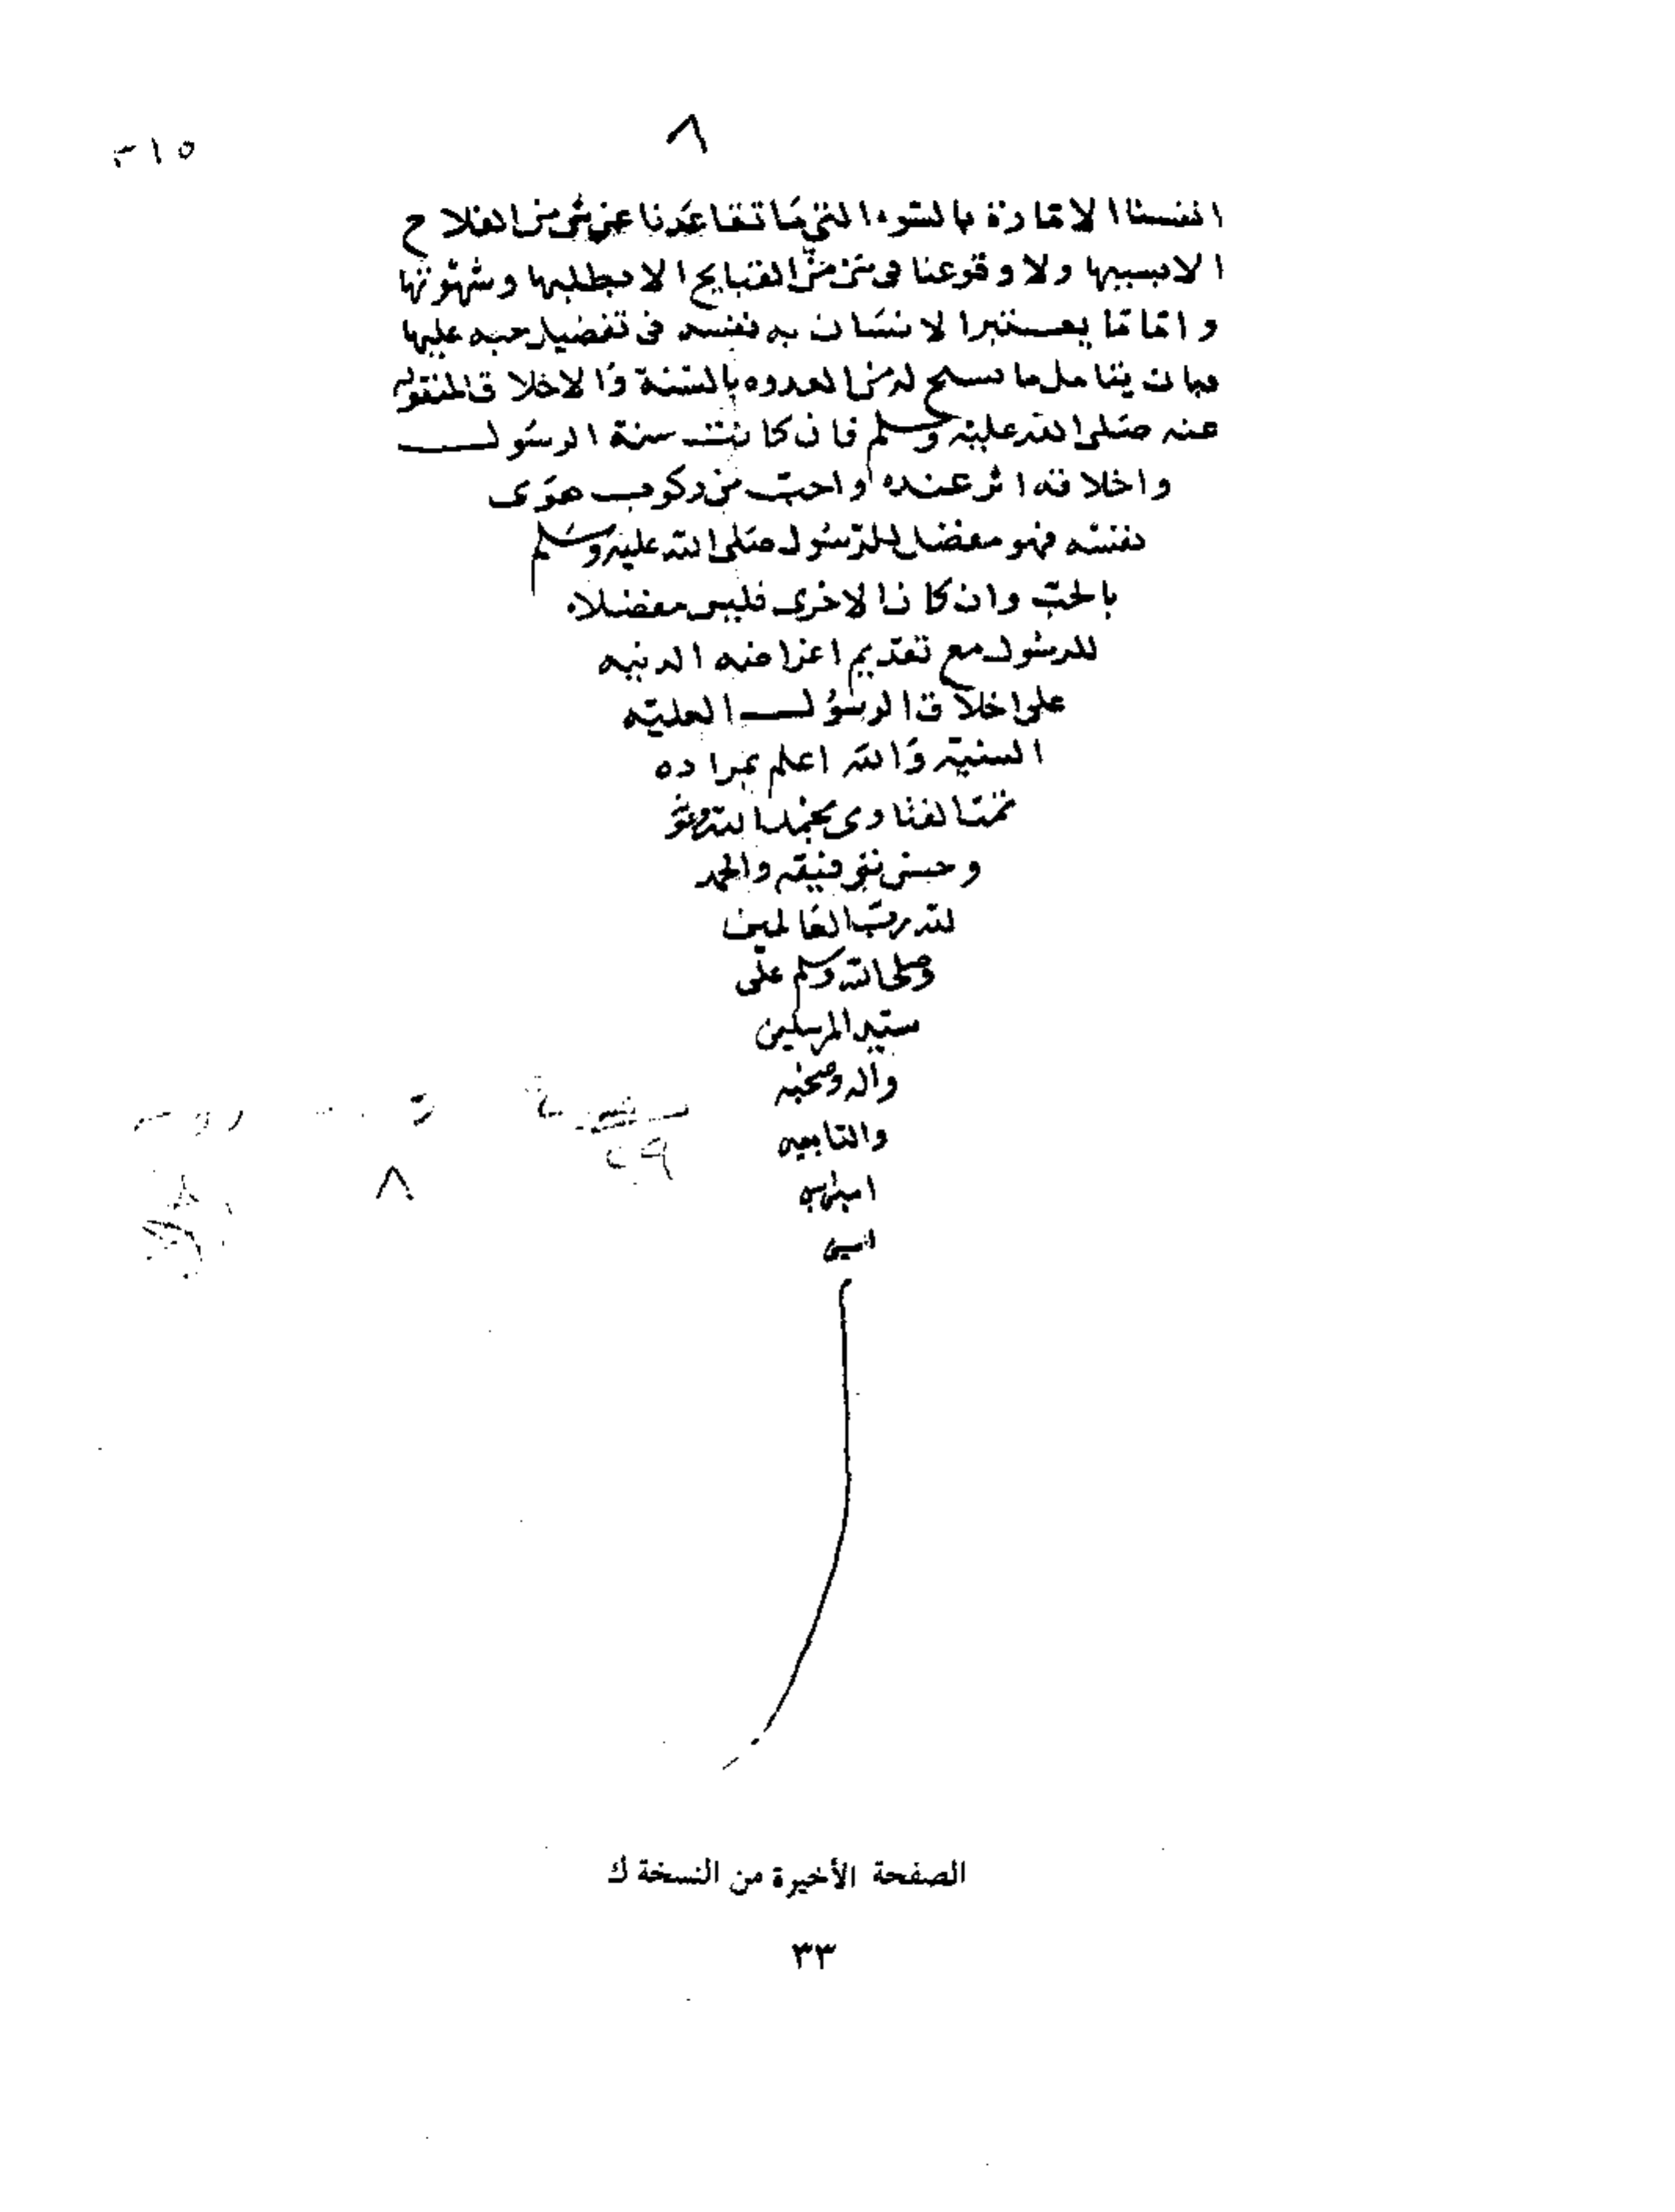 ٨
٣١٥
انفسنا الامارة بالسوء التي ما تقاعدنا عن شي من الفلاح
الا بسببها ولا وقوعنا في شي من القبايح الا بطلبها وشهوتها
واما ما يعتبر الانسان به نفسه في تفضيل حبه عليها
فبان يتامل ما سنح له من بالسنة والاخلاق المنقوله
عنه صلى الله عليه وسلم فان كانت سنة الرسول
واخلاقه اثر عنده واحب من ركوب هوى
نفسه فهو مفضل للرسول صلى الله عليه وسلم
بالحب وان كان الاخرى فليس مفضلا
للرسول مع تقديم اغراضه الدنيه
على اخلاق الرسول العليه
السنية والله اعلم بمراده
تمت الفتاوى بحمد الله
وحسن توفيقه والحمد
لله رب العالمين
وصلى الله وسلم على
سيد المرسلين
واله وصحبه
والتابعين
امين
امين
٨
الصفحة الأخيرة من النسخة ك
٣٣